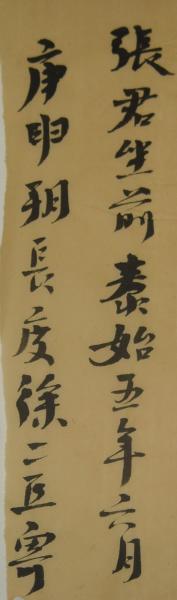 張君坐前泰始五年六月
庚申朔長度徐二